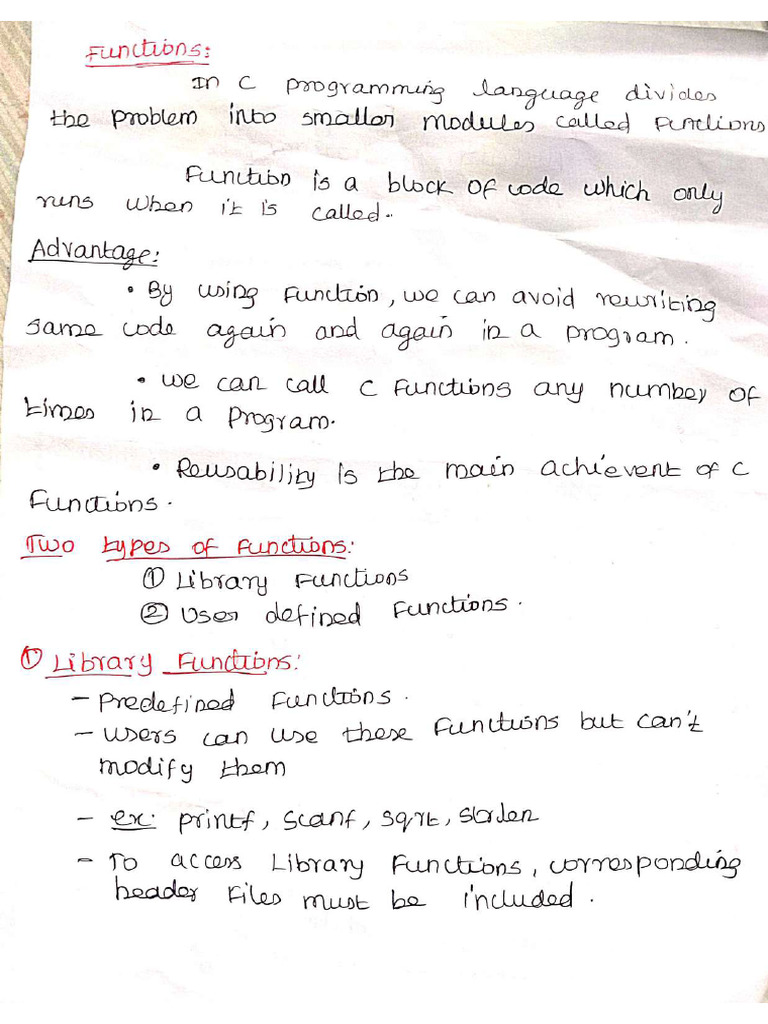 Functions:
In C programming language divides
the problem into smaller modules called functions
Function is a block of code which only
runs when it is called.
Advantage:
• By using function, we can avoid rewriting
same code again and again in a program.
• we can call C functions any number of
times in a program.
• Reusability is the main achievent of C
Functions.
Two types of functions:
① Library Functions
② User defined functions.
① Library Functions:
- Predefined functions.
- users can use these functions but can't
modify them
- ex: printf, scanf, sqrt,
- To access Library Functions, corresponding
header files must be included.